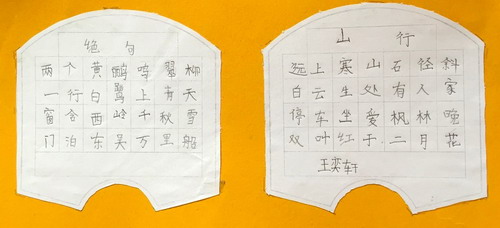 绝句
两个黄鹂鸣翠柳
一行白鹭上青天
窗含西岭千秋雪
门泊东吴万里船
山行
远上寒山石径斜
白云生处有人家
停车坐爱枫林晚
双叶红于二月花
王奕轩